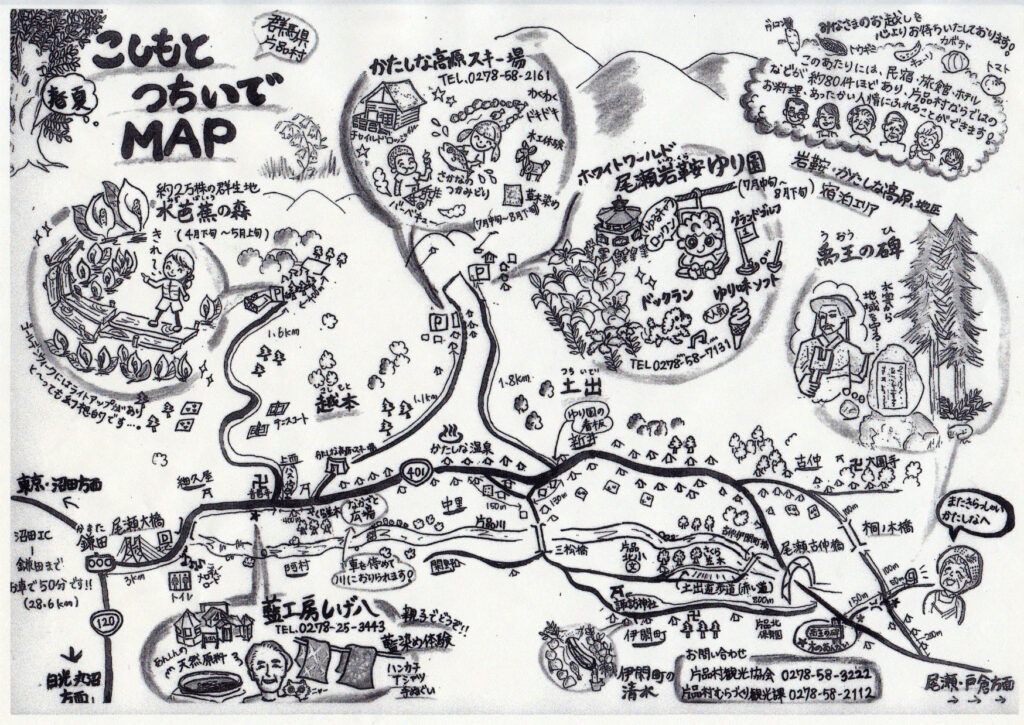 こしもと
つちいで
MAP
春夏
群馬県
片品村
かたしな高原スキー場
TEL.0278-58-2161
わくわく
ドキドキ
木工体験
さかなの
つかみどり
バーベキュー
草木染め
(7月中旬～8月下旬)
みなさまのお越しを
心よりお待ちいたしております!
トマト
カボチャ
このあたりには、民宿・旅館・ホテル
などが約80件ほどあり、片品村ならではの
お料理、あったかい人情にふれることができます。
岩鞍・かたしな高原地区
宿泊エリア
ホワイトワールド
尾瀬岩鞍ゆり園
(7月中旬～
8月下旬)
グランドゴルフ
ドックラン
ゆり味ソフト
大人気
TEL0278-58-7131
約2万株の群生地
水芭蕉の森
(4月下旬～5月上旬)
きれい
と〜っても幻想的です…。
うおう ひ
禹王の碑
水害から
地域を守る
1.6km
こしもと
越本
テニスコート
1.1km
1.8km
つちいで
土出
ゆり園の
看板
新井
かたしな温泉
401
古仲
大圓寺
東京・沼田方面
沼田IC
鎌田まで
車で50分です!!
(28.6km)
かまた
鎌田
尾瀬大橋
細久屋
上西
3km
トイレ
120
日光・丸沼
方面
中里
片品川
150m
130m
なかざと
広場
車を停めて
川におりられます!
閑野
三松橋
片品
北小
文
さくら
並木
古仲
尾瀬古仲橋
桐ノ木橋
土出遊歩道(赤い道)
諏訪神社
伊閑町
片品北
保育園
200m
150m
またきらっしゃい
かたしなへ
藍工房しげ八
TEL.0278-25-3443
親子でどうぞ!!
藍染め体験
ハンカチ
Tシャツ
手ぬぐい
あんしんの
天然原料
伊閑町の
清水
お問い合わせ
片品村観光協会 0278-58-3222
片品村むらづくり観光課 0278-58-2112
尾瀬・戸倉方面